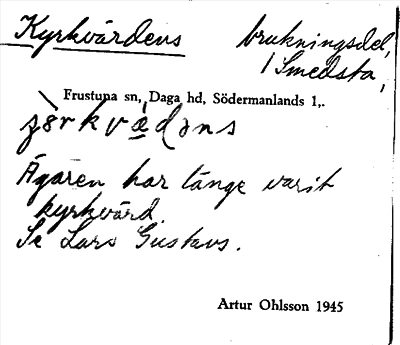 Kyrkvärdens brukningsdel,
i Smedsta,
Frustuna sn, Daga hd, Södermanlands l,.
Ägaren har länge varit
kyrkvärd.
Se Lars Gustavs.
Artur Ohlsson 1945